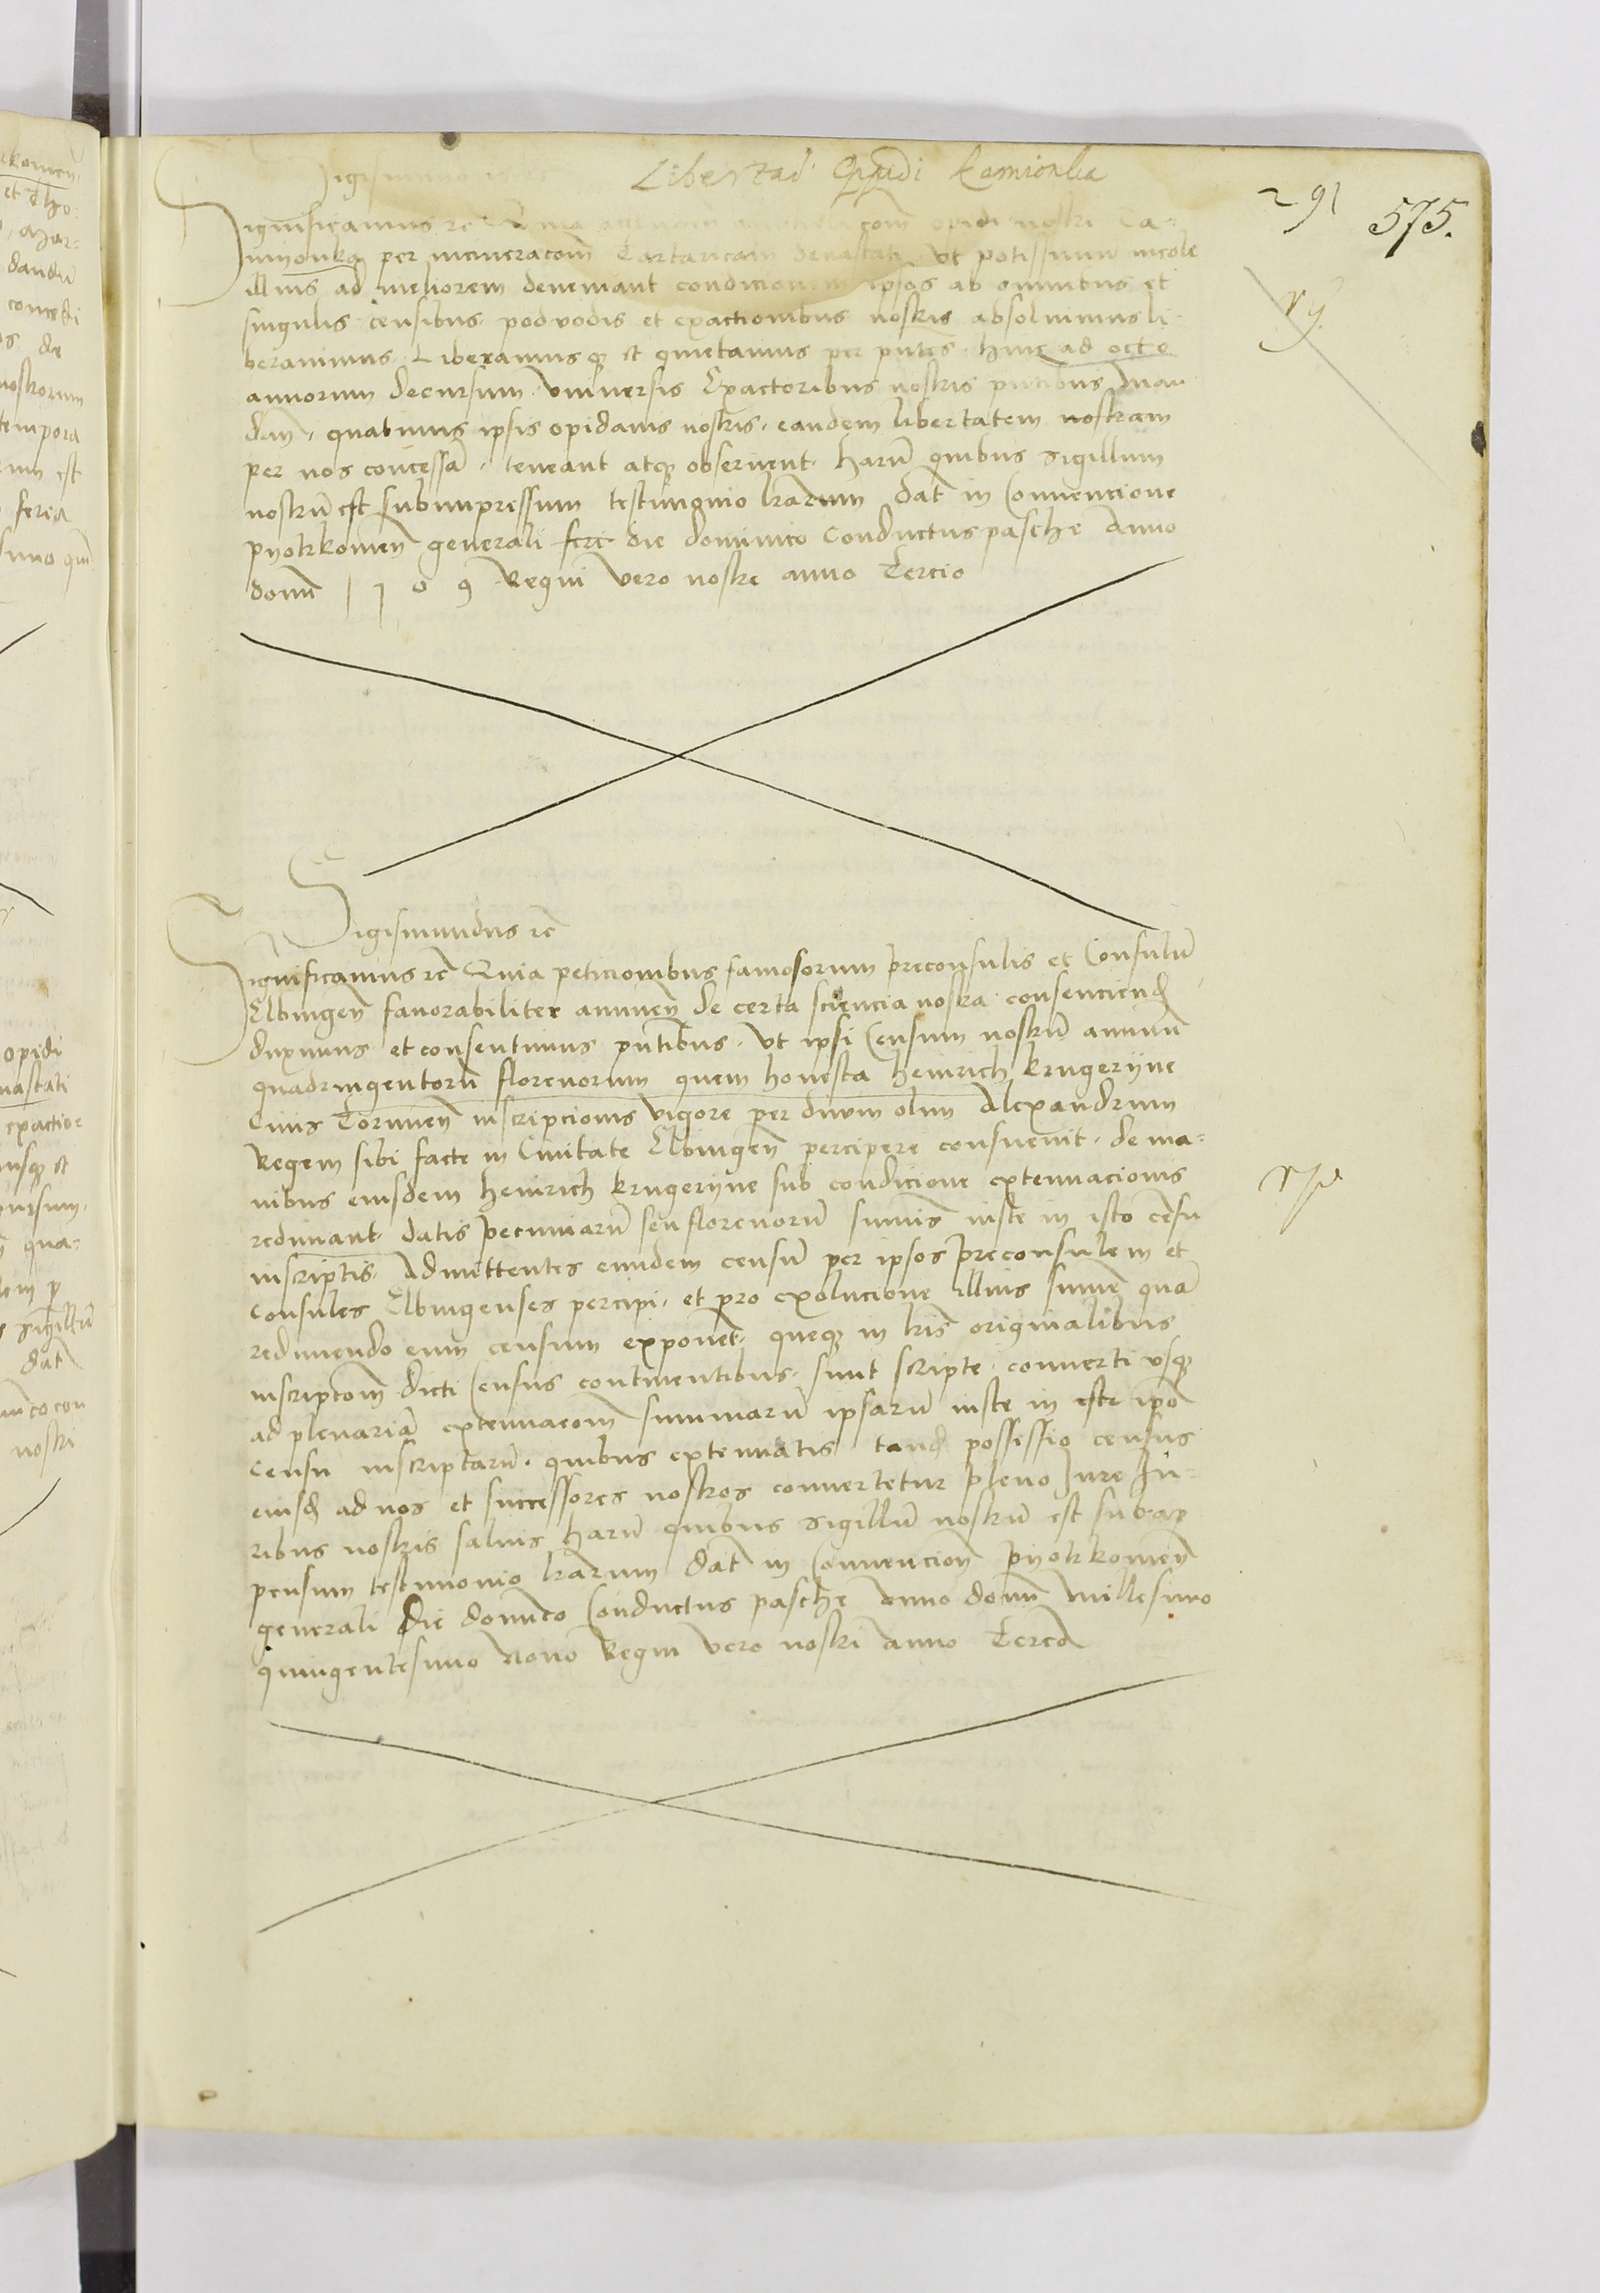 Libertad Oppidi Kamionka
291
575.
Sigismundus
Significamus rc Quia opidi nostri Ca-
myonka per incineracom Tartaricam devastati ut potissimum incole
illius ad meliorem deveniant condicionem ipsos ab omnibus et
singulis censibus podvodis et exactionibus nostris absolvimus li-
beravimus Liberamusq et quietamus per pntes hinc ad octo
annorum decursum universis Exactoribus nostris pntibus man
dam quatinus ipsis opidanis nostris eandem libertatem nostram
per nos concessam teneant atq observent harum quibus sigillum
nostrum est subimpressum testimonio lrarum dat in Convencione
pyotrkomien generali fere die dominico Conductus pasche Anno
domi 1509 Regni vero nostre anno Tercio
Sigismundus rc
Significamus rc Quia peticionibus famosorum preconsulis et Consulum
Elbingen favorabiliter annuen de certa sciencia nostra consenciend
duximus et consentimus pntibus ut ipsi Censum nostrum annuum
quadringentorum florenorum quem honesta heinrich krugeryne
Civis Torunen inscripcionis vigore per divum olim Alexandrum
Regem sibi facte in Civitate Elbingen percipere consuevit de ma-
nibus eiusdem heinrich krugeryne sub condicione extenuacionis
redimant datis pecuniarum seu florenorum summis iuste in isto censu
inscriptis Admittentes eundem censum per ipsos preconsulem et
consules Elbingenses percipi et pro exolucione illius summe quam
redimendo eum censum exponent queq in lris originalibus
inscriptom dicti Census continentibus sunt scripte converti usq
ad plenariam extenuacom summarum ipsarum iuste in iste ipo
censu inscriptarum quibus extenuatis tand possessio census
eiusd ad nos et successores nostros convertetur pleno Jure Ju-
ribus nostris salvis harum quibus sigillum nostrum est subap
pensum testimonio lrarum dat in Convencion pyotrkomien
generali die domico Conductus pasche Anno domi millesimo
quingentesimo Nono Regni vero nostri anno Tercio